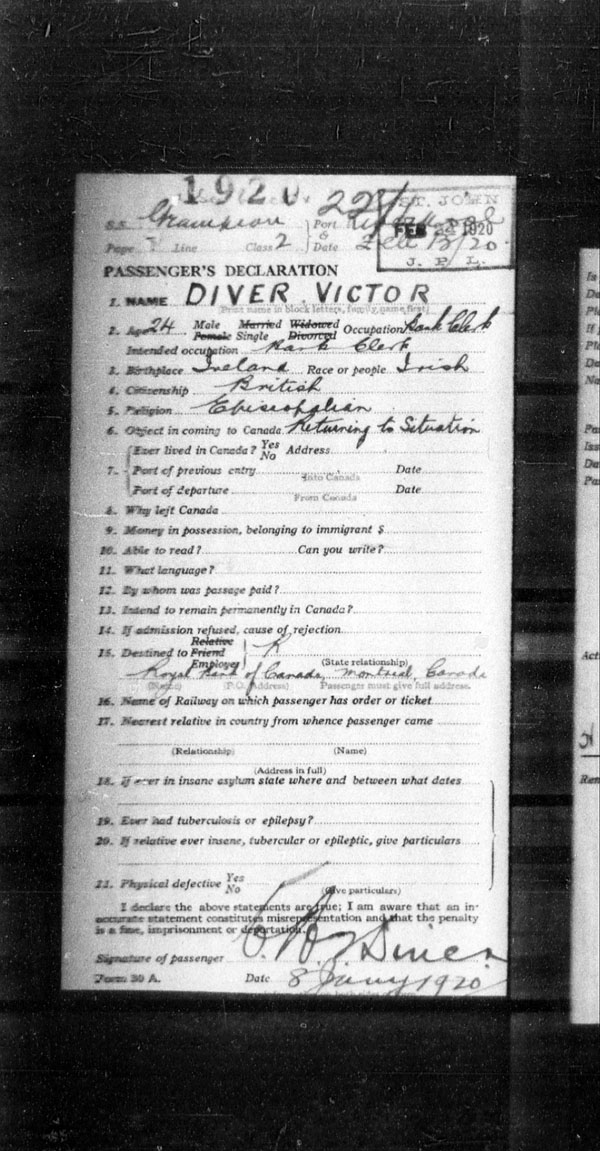 1920
S.S. Grampian Port & Date Feb 13/20. ST. JOHN FEB 24 1920 J. P. L.
Page Line Class 2
PASSENGER'S DECLARATION
1. NAME DIVER VICTOR
(Print name in block letters, family name first)
2. Age 24 Male Female Married Single Widowed Divorced Occupation Bank Clerk
Intended occupation Bank Clerk
3. Birthplace Ireland Race or people Irish
4. Citizenship British
5. Religion Episcopalian
6. Object in coming to Canada Returning to Situation
7. Ever lived in Canada? Yes No Address
Port of previous entry Into Canada Date
Port of departure From Canada Date
8. Why left Canada
9. Money in possession, belonging to immigrant $
10. Able to read? Can you write?
11. What language?
12. By whom was passage paid?
13. Intend to remain permanently in Canada?
14. If admission refused, cause of rejection
15. Destined to Relative Friend Employer (State relationship)
Royal Bank of Canada, Montreal, Canada
(Name) (P.O. Address) Passenger must give full address.
16. Name of Railway on which passenger has order or ticket
17. Nearest relative in country from whence passenger came
(Relationship) (Name)
(Address in full)
18. If ever in insane asylum state where and between what dates
19. Ever had tuberculosis or epilepsy?
20. If relative ever insane, tubercular or epileptic, give particulars
21. Physical defective Yes No (Give particulars)
I declare the above statements are true; I am aware that an in-
accurate statement constitutes misrepresentation and that the penalty
is a fine, imprisonment or deportation.
Signature of passenger Diver.
Form 30 A. Date 8 Jany 1920